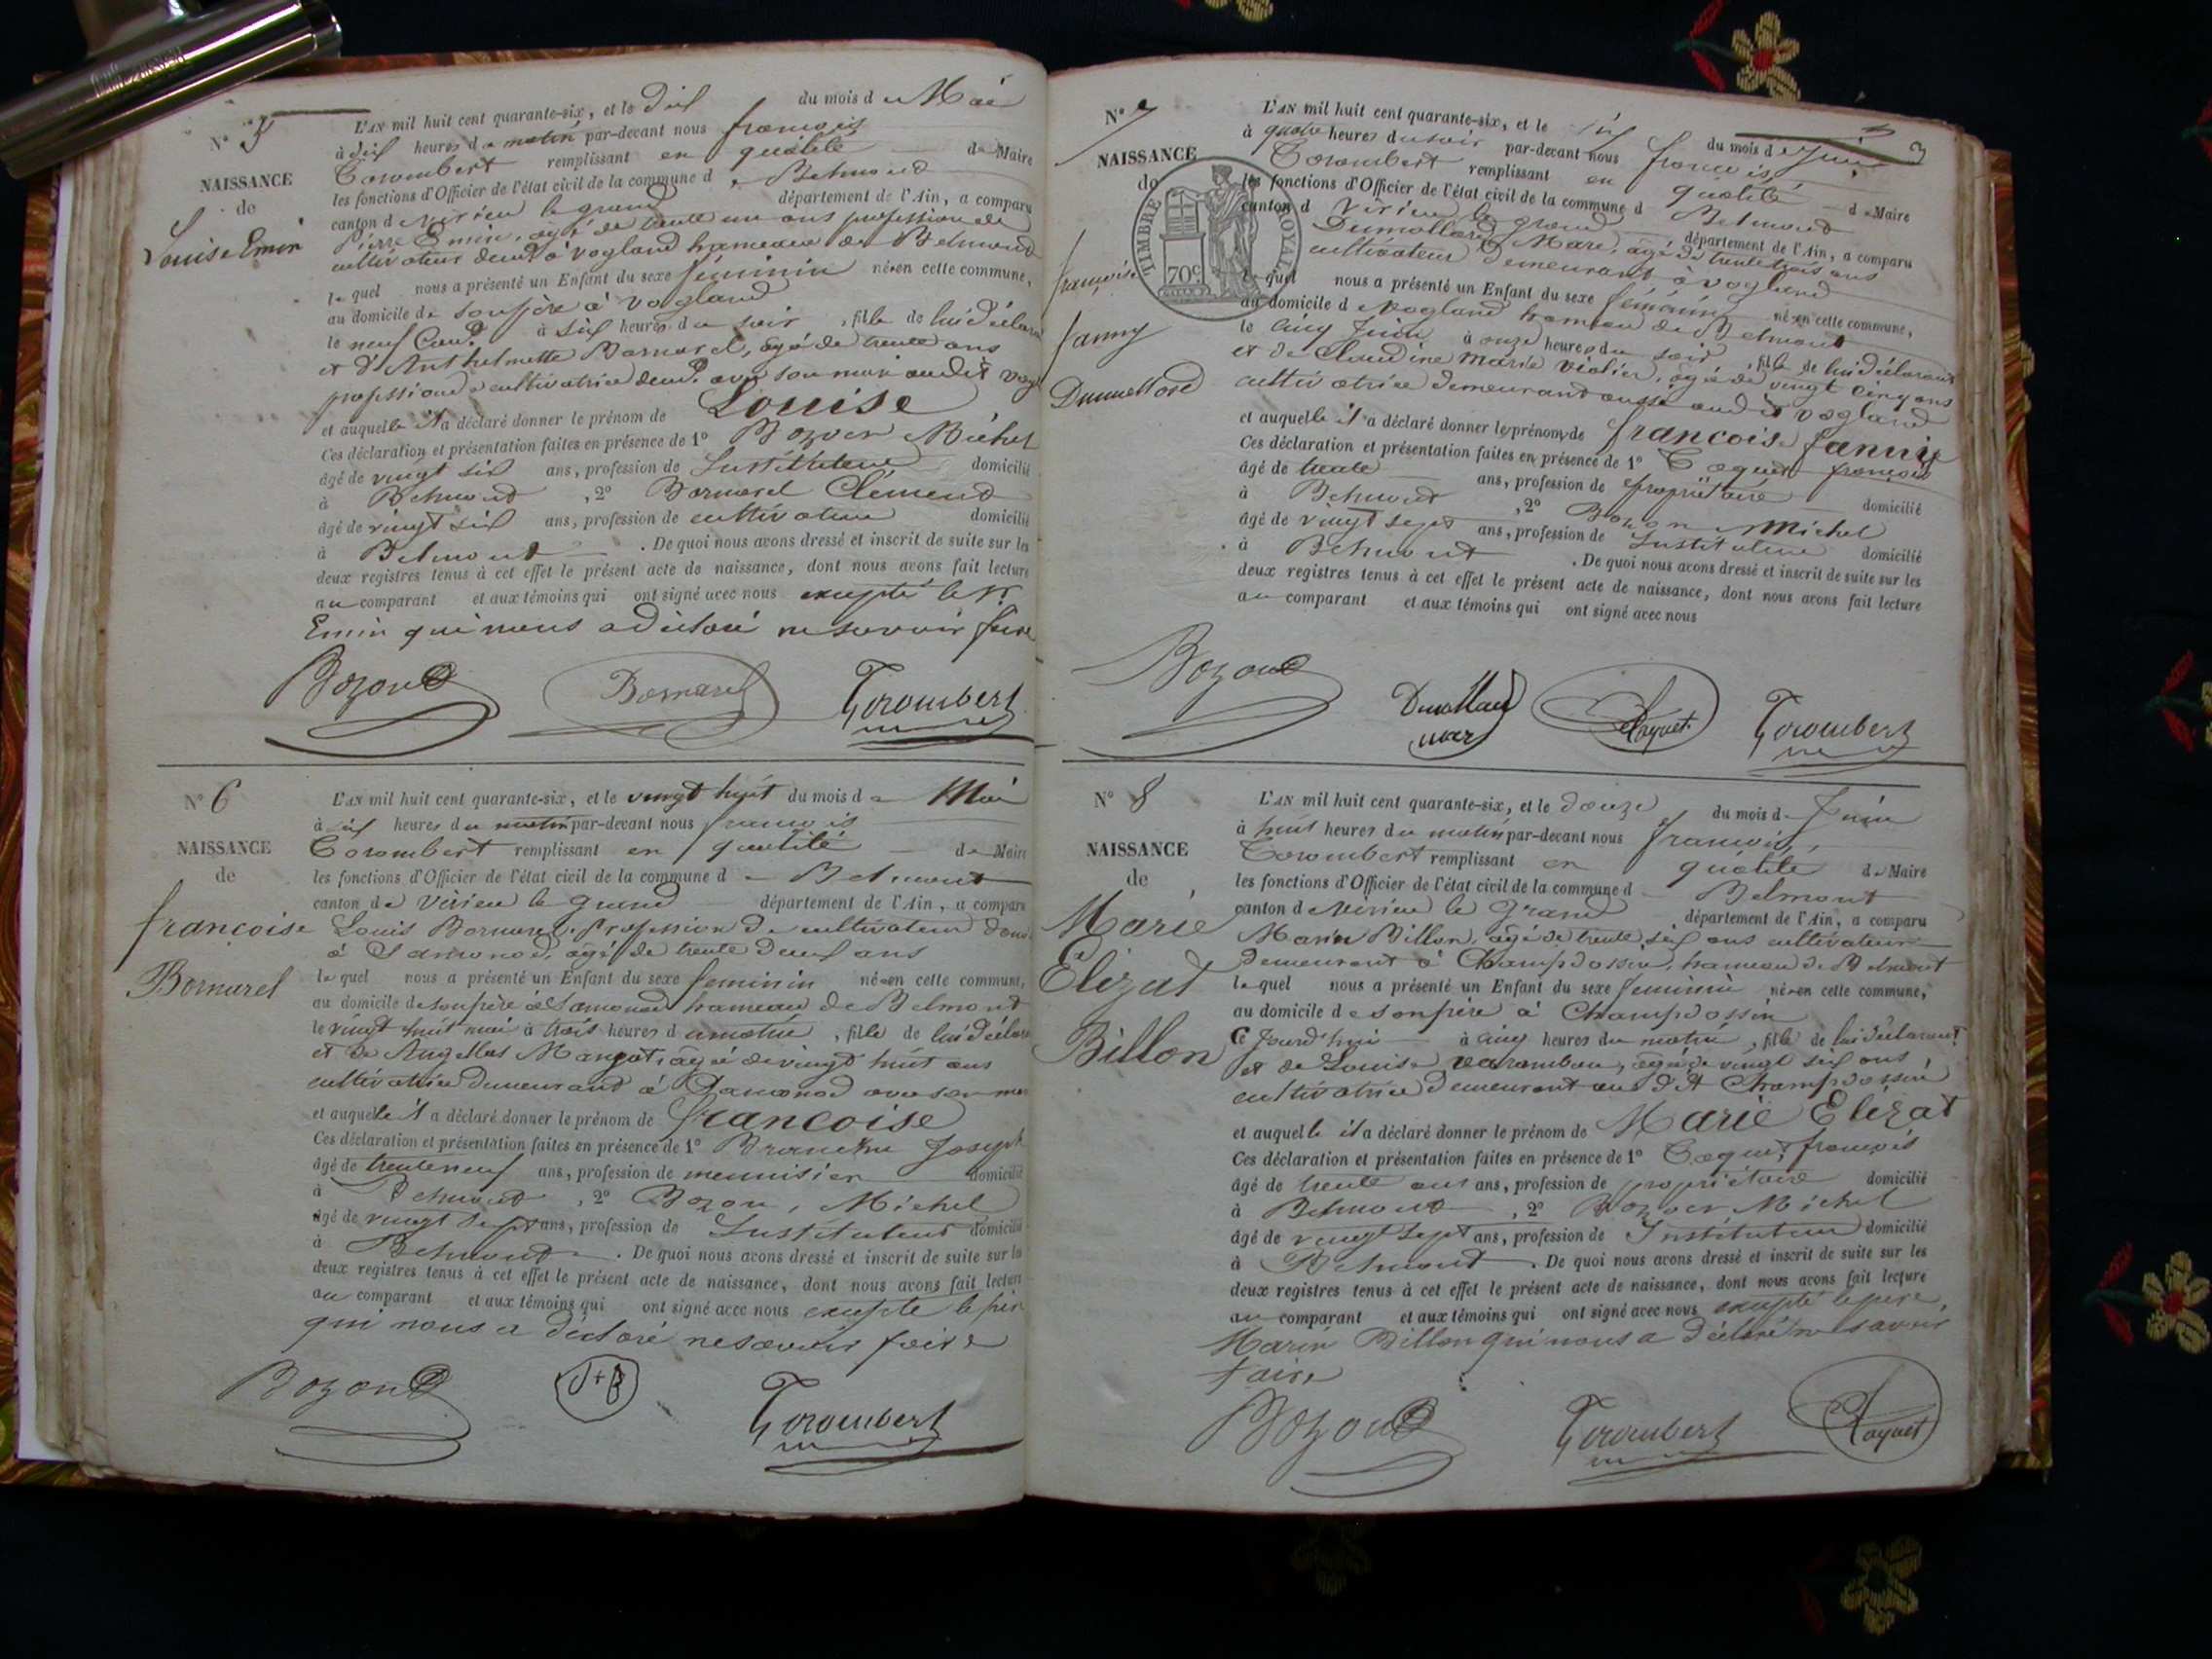 N° 5
NAISSANCE
de
Louise Emin
L'AN mil huit cent quarante-six, et le dix du mois de Mai
à six heures du matin par-devant nous françois
Corombert remplissant en qualité de Maire
les fonctions d'Officier de l'état civil de la commune de Belmont
canton de Virieu le grand département de l'Ain, a comparu
Pierre Emin, agé de trente un ans profession de
cultivateur demt à vogland hameau de Belmond
lequel nous a présenté un Enfant du sexe féminin né en cette commune,
au domicile de son père à vogland
le neuf à six heures du soir, fille de lui déclarant
et d'Anthelmette Bornarel, âgé de trente ans
profession de cultivatrice demt avec son mari audit
et auquelle il a déclaré donner le prénom de Louise
Ces déclaration et présentation faites en présence de 1° Bozon Michel
âgé de vingt six ans, profession de Instituteur domicilié
à Belmond, 2° Bornarel Clémend
âgé de vingt six ans, profession de cultivateur domicilié
à Belmont. De quoi nous avons dressé et inscrit de suite sur les
deux registres tenus à cet effet le présent acte de naissance, dont nous avons fait lecture
au comparant et aux témoins qui ont signé avec nous excepté le
Emin qui nous a déclaré ne savoir faire
Bozond Bornarel Corombert
N° 6
NAISSANCE
de
françoise
Bornarel
L'AN mil huit cent quarante-six, et le vingt huit du mois de Mai
à six heures du matin par-devant nous françois
Corombert remplissant en qualité de Maire
les fonctions d'Officier de l'état civil de la commune de Belmont
canton de Virieu le grand département de l'Ain, a comparu
Louis Bornarel. Profession de cultivateur
à agé de trente deux ans
lequel nous a présenté un Enfant du sexe feminin né en cette commune,
au domicile de son père hameau de Belmont
le vingt huit mai à trois heures du matin, fille de lui déclarant
et de âgé de vingt huit ans
cultivatrice demeurand à avec son mari
et auquelle il a déclaré donner le prénom de françoise
Ces déclaration et présentation faites en présence de 1° Joseph
âgé de trente neuf ans, profession de menuisier domicilié
à Belmond, 2° Bozon, Michel
âgé de vingt sept ans, profession de Instituteur domicilié
à Belmond. De quoi nous avons dressé et inscrit de suite sur les
deux registres tenus à cet effet le présent acte de naissance, dont nous avons fait lecture
au comparant et aux témoins qui ont signé avec nous excepté le père
qui nous a déclaré ne savoir faire
Bozond J+B Corombert
3
N° 7
NAISSANCE
de
TIMBRE ROYAL
70c
françoise
fanny
Dumollard
L'AN mil huit cent quarante-six, et le six du mois de Juin
à quatre heures du soir par-devant nous françois
Corombert remplissant en qualité de Maire
les fonctions d'Officier de l'état civil de la commune de Belmond
canton de Virieu le grand département de l'Ain, a comparu
Dumollard Marc, âgé de trente trois ans
cultivateur demeurant à vogland
lequel nous a présenté un Enfant du sexe féminin né en cette commune,
au domicile de vogland hameau de Belmont
le cinq Juin à onze heures du soir, fille de lui déclarant
et de Claudine Marie Violier, âgé de vingt cinq ans
cultivatrice demeurand aussi audit vogland
et auquelle il a déclaré donner le prénom de francoise fanny
Ces déclaration et présentation faites en présence de 1° Coquet françois
âgé de trente ans, profession de propriétaire domicilié
à Belmont, 2° Bozon Michel
âgé de vingt sept ans, profession de Instituteur domicilié
à Belmont. De quoi nous avons dressé et inscrit de suite sur les
deux registres tenus à cet effet le présent acte de naissance, dont nous avons fait lecture
au comparant et aux témoins qui ont signé avec nous
Bozond Dumollard marc Coquet Corombert
N° 8
NAISSANCE
de
Marie
Elizat
Billon
L'AN mil huit cent quarante-six, et le douze du mois de Juin
à huit heures du matin par-devant nous françois,
Corombert remplissant en qualité de Maire
les fonctions d'Officier de l'état civil de la commune de Belmont
canton de Virieu le Grand département de l'Ain, a comparu
Marin Billon, âgé de trente six ans cultivateur
demeurant à Champdossin, hameau de Belmont
lequel nous a présenté un Enfant du sexe feminin né en cette commune,
au domicile de son père à Champdossin
Ce Jourd'hui à cinq heures du matin, fille de lui déclarant
et de Louise âgé de vingt six ans,
cultivatrice demeurant au dit Champdossin
et auquelle il a déclaré donner le prénom de Marie Elizat
Ces déclaration et présentation faites en présence de 1° Coquet, françois
âgé de trente ans, profession de propriétaire domicilié
à Belmont, 2° Bozon Michel
âgé de vingt sept ans, profession de Instituteur domicilié
à Belmond. De quoi nous avons dressé et inscrit de suite sur les
deux registres tenus à cet effet le présent acte de naissance, dont nous avons fait lecture
au comparant et aux témoins qui ont signé avec nous excepté le pere,
Marin Billon qui nous a déclaré ne savoir
faire
Bozond Corombert Coquet